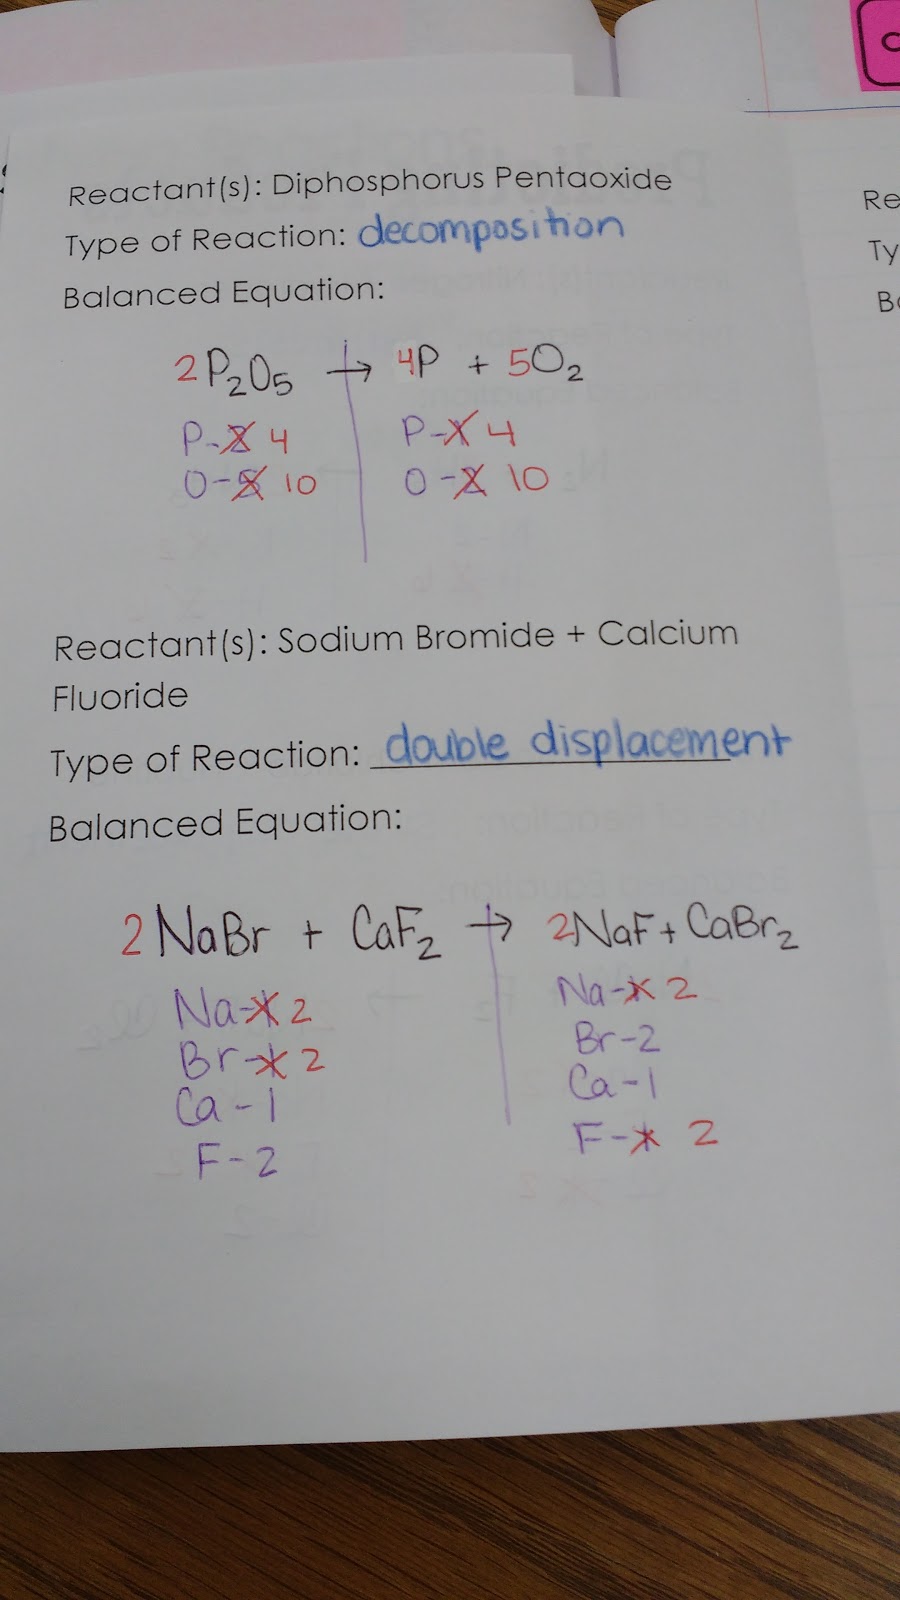 Reactant(s): Diphosphorus Pentaoxide
Type of Reaction: decomposition
Balanced Equation:
2P₂O₅ → 4P + 5O₂
P-2 4 P-1 4
O-5 10 O-2 10
Reactant(s): Sodium Bromide + Calcium
Fluoride
Type of Reaction: double displacement
Balanced Equation:
2NaBr + CaF₂ → 2NaF + CaBr₂
Na-1 2 Na-1 2
Br-1 2 Br-2
Ca-1 Ca-1
F-2 F-1 2
Re
Ty
Ba